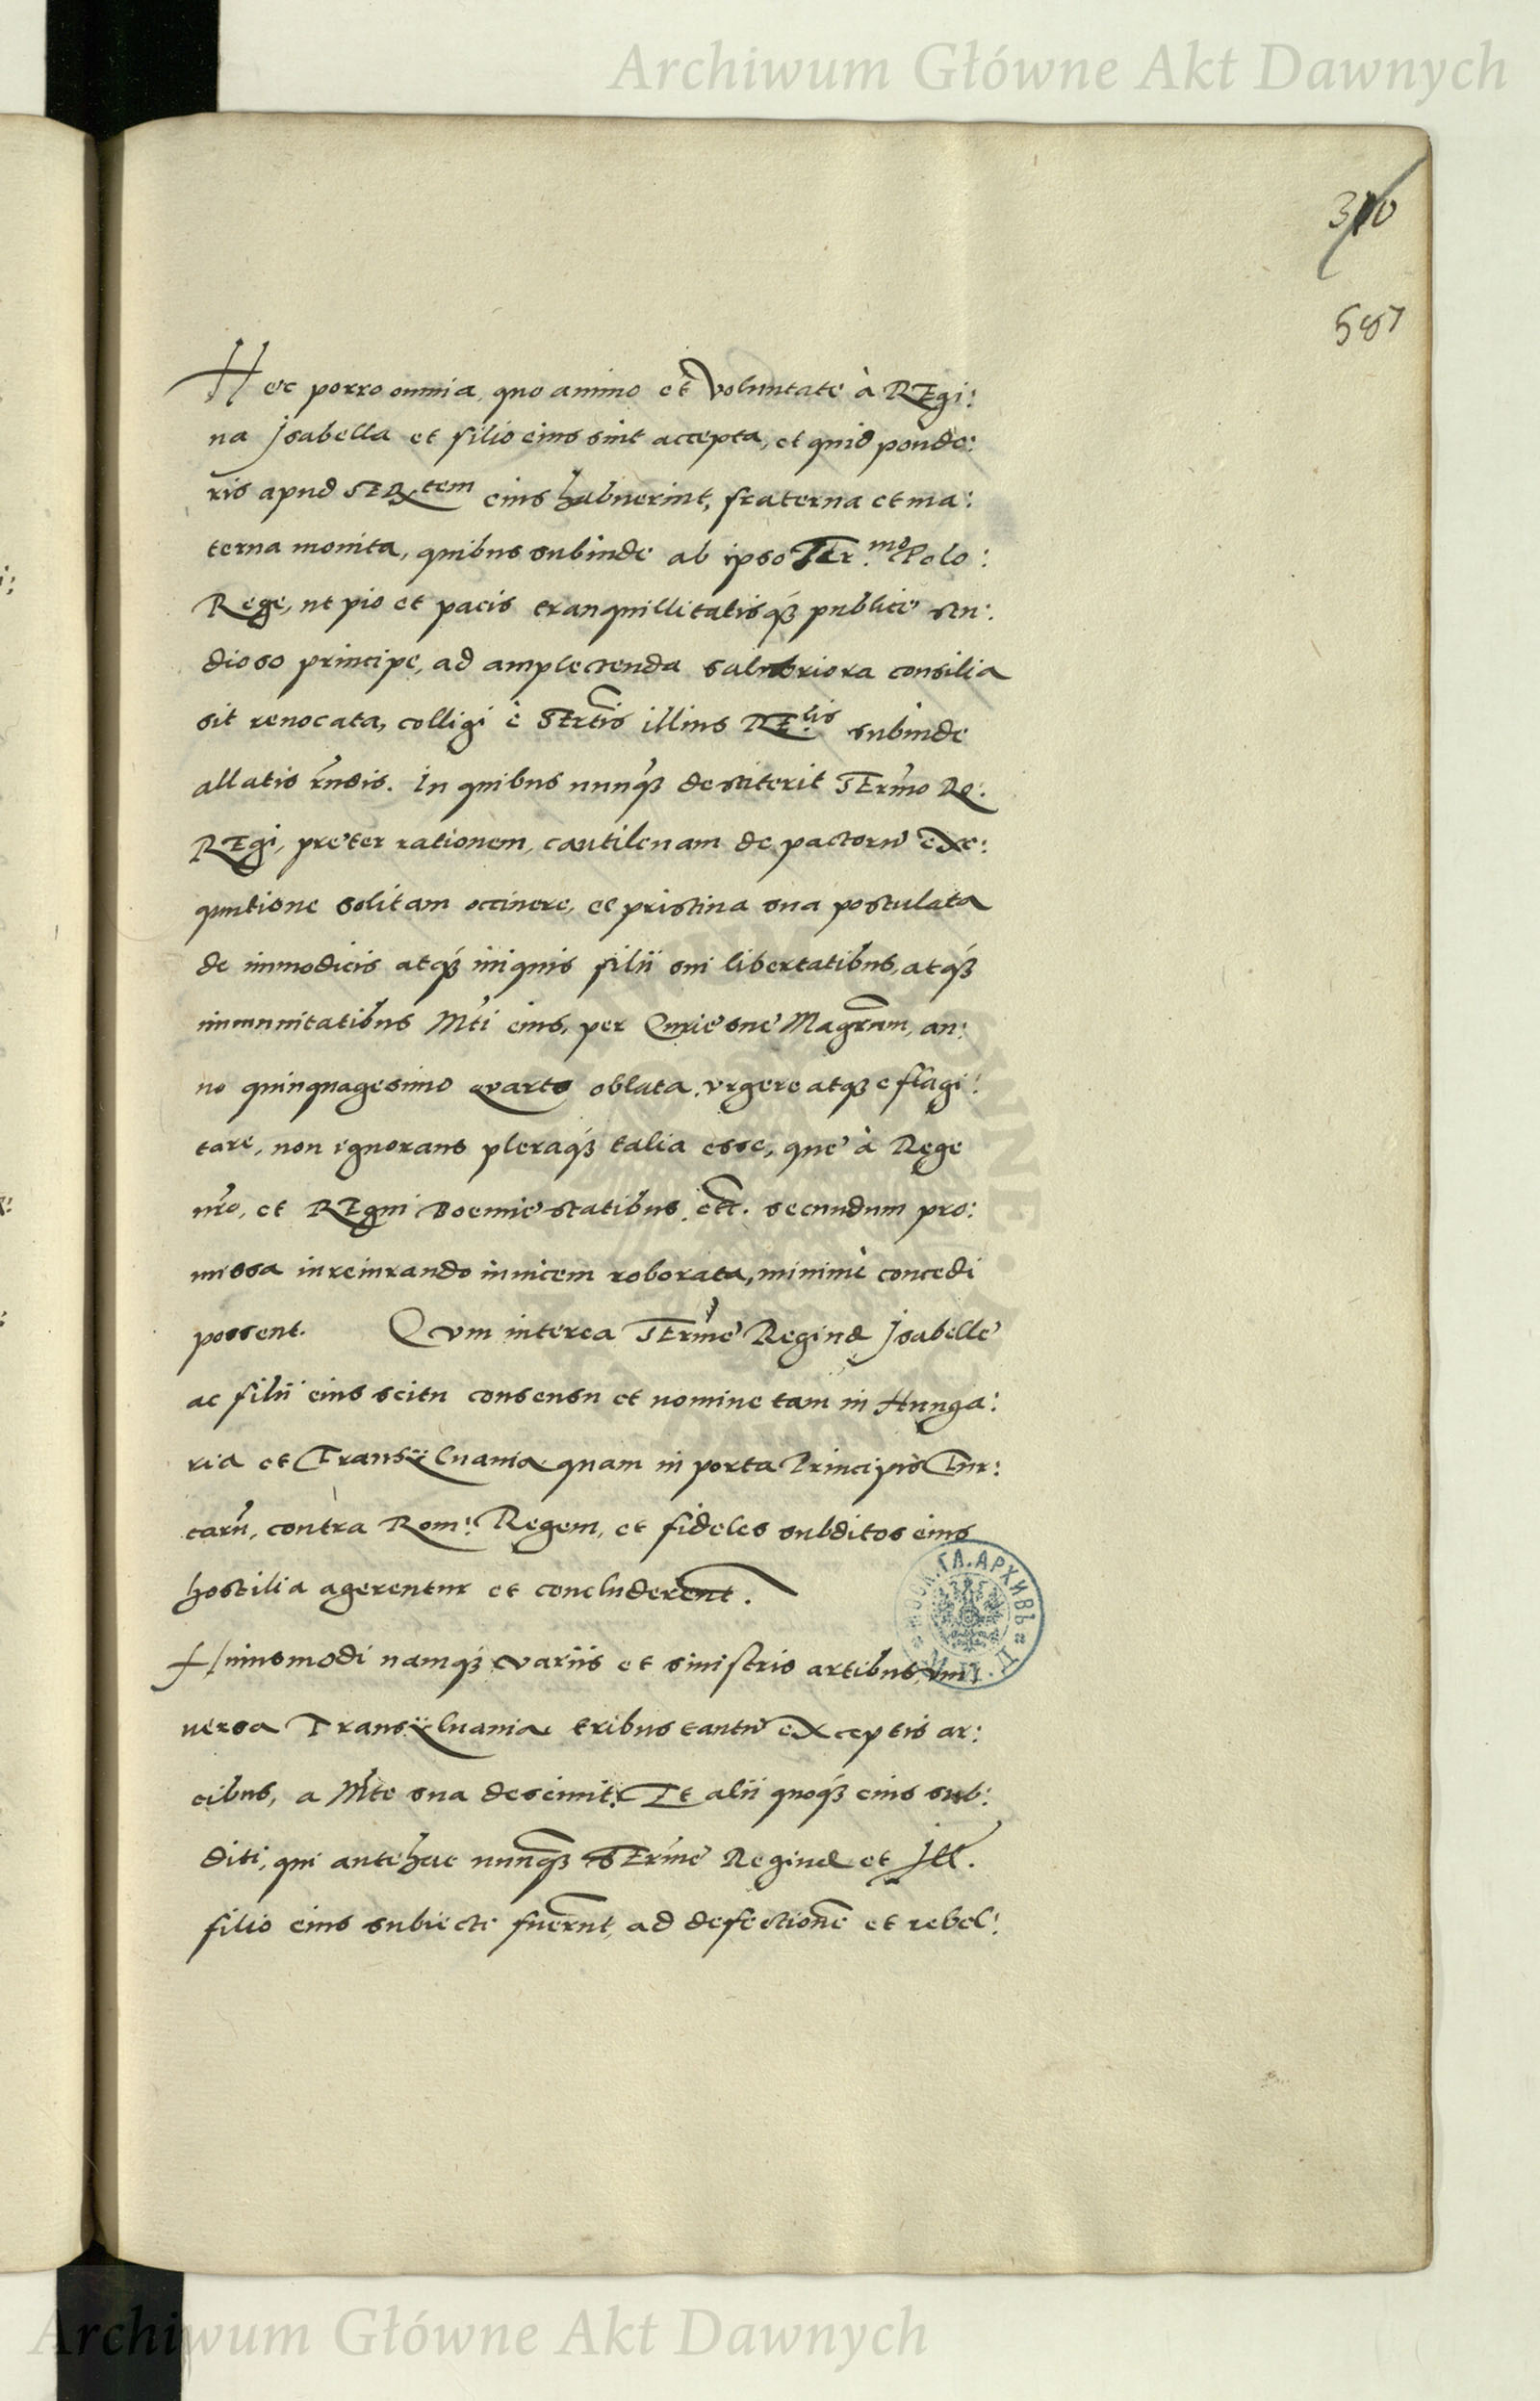 Archiwum Główne Akt Dawnych
310
587
Hec porro omnia, quo animo et voluntate à REgi:
na Jsabella et filio eius sint accepta, et quid ponde:
ris apud SERtem eius habuerint, fraterna et ma:
terna monita, quibus subinde ab ipso Ser.mo Polo:
Rege, ut pio et pacis tranquillitatisq3 publice stu:
dioso principe, ad amplectenda salubriora consilia
sit reuocata, colligi è SErtis illius REg.lis subinde
allatis rńsis. In quibus nunq3 destiterit SErmo Ro:
REgi, preter rationem, cantilenam de pactorū exe:
quutione solitam occinere, et pristina sua postulata
de immodicis atq3 iniquis filii sui libertatibus, atq3
immunitatibus Mti eius, per Curie sue Magrum, an:
no quinquagesimo quarto oblata, vrgere atq3 efflagi:
tare, non ignorans pleraq3 talia esse, que à Rege
nro, et REgni Boemie statibus etc. secundum pro:
missa iureiurando inuicem roborata, minimè concedi
possent. Qum interea SErme Regine Jsabelle
ac filii eius scitu consensu et nomine tam in Hunga:
ria et Transÿluania quam in porta Principis Tur:
carū, contra Rom: Regem, et fideles subditos eius
hostilia agerentur et concluderent.
Huiusmodi namq3 variis et sinistris artibus, vni
uersa Transÿluania tribus tantū exceptis ar:
cibus, a Mte sua desciuit. Et alii quoq3 eius sub:
diti, qui antehac nunq3 SErme Regine et Jll.
filio eius subiecti fuerunt, ad defectionē et rebel:
МОСК. ГЛ. АРХИВЪ
Archiwum Główne Akt Dawnych